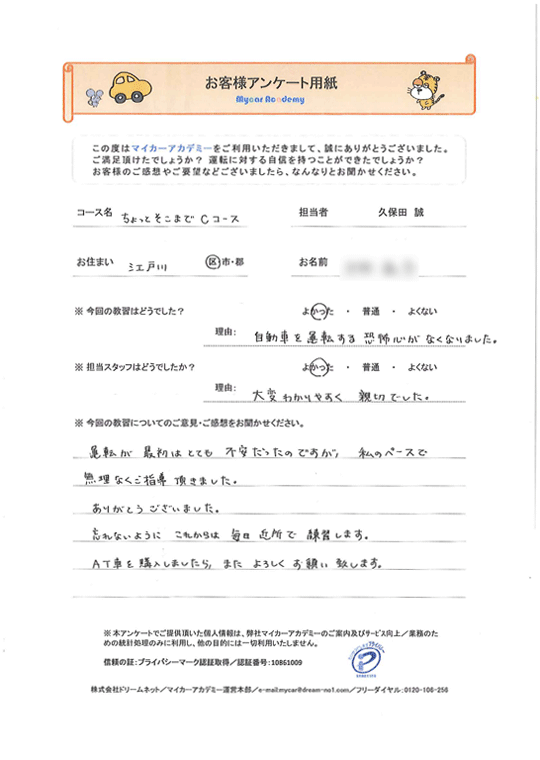 お客様アンケート用紙
Mycar Academy
この度はマイカーアカデミーをご利用いただきまして、誠にありがとうございました。
ご満足頂けたでしょうか？ 運転に対する自信を持つことができたでしょうか？
お客様のご感想やご要望などございましたら、なんなりとお聞かせください。
コース名 ちょっとそこまで Cコース 担当者 久保田 誠
お住まい 江戸川 区・市・郡 お名前
※ 今回の教習はどうでした？ よかった ・ 普通 ・ よくない
理由: 自動車を運転する恐怖心がなくなりました。
※ 担当スタッフはどうでしたか？ よかった ・ 普通 ・ よくない
理由: 大変わかりやすく 親切でした。
※ 今回の教習についてのご意見・ご感想をお聞かせください。
運転が 最初は とても 不安だったのですが, 私のペースで
無理なくご指導 頂きました。
ありがとう ございました。
忘れないように これからは 毎日 近所で 練習します。
AT車を購入しましたら, また よろしく お願い 致します。
※ 本アンケートでご提供頂いた個人情報は、弊社マイカーアカデミーのご案内及びサービス向上／業務のた
めの統計処理のみに利用し、他の目的には一切利用いたしません。
信頼の証：プライバシーマーク認証取得／認証番号：10861009
株式会社ドリームネット／マイカーアカデミー運営本部／e-mail:mycar@dream-no1.com／フリーダイヤル：0120-106-256